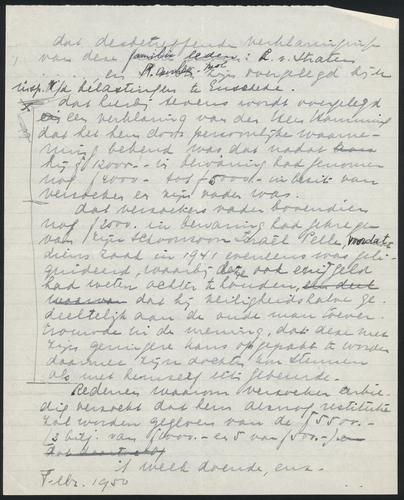 dat desbetreffende verklaringen
van deze familie leden: R. v. Straten
en R. zijn overgelegd bij
insp. v/d belastingen te Enschede.
dat hierbij tevens wordt overgelegd
een verklaring van den Heer
dat het hem door persoonlijke waarne-
ming bekend was dat nadat
hij ƒ 12000.- in bewaring had genomen
nog ƒ 4000.- tot ƒ 5000.- in bezit van
verzoeker en zijn vader was.
dat verzoekers vader bovendien
nog ƒ 2000.- in bewaring had gekregen
van zijn schoonzoon Israël Pelle, nadat
diens zaak in 1941 eveneens was geli-
quideerd, waarbij deze ook enig geld
had weten achter te houden,
dat hij veiligheidshalve ge-
deeltelijk aan de oude man toever-
trouwde in de meening, dat deze met
zijn geringere kans op gepakt te worden
daarmee zijn dochter kon steunen
als met hemzelf iets gebeurde.
Redenen waarom verzoeker eerbie-
dig verzoekt dat hem alsnog restitutie
zal worden gegeven van de ƒ 5500.-
(3 bilj. van ƒ 1000.- en 5 van ƒ 500.-)
't welk doende, enz.
Febr. 1950